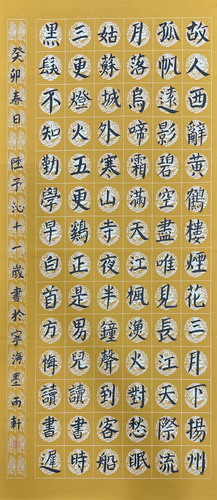 故人西辭黃鶴樓煙花三月下揚州
孤帆遠影碧空盡唯見長江天際流
月落烏啼霜滿天江楓漁火對愁眠
姑蘇城外寒山寺夜半鐘聲到客船
三更燈火五更雞正是男兒讀書時
黑髮不知勤學早白首方悔讀書遲
癸卯春日 陸予沁十一歲書於寧海墨雨軒